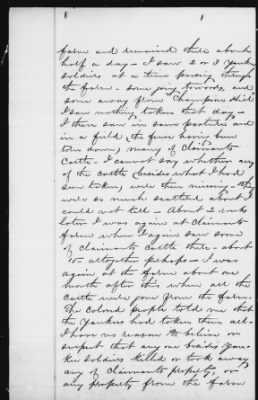 farm and remained there about
half a day - I saw 2 or 3 Yankee
soldiers at a time passing through
the farm - some going towards, and
some away from Champion Hill
I saw nothing taken that day -
I then saw in some pasture and
in a field, the fence having been
torn down, many of Claimants
Cattle - I cannot say whether any
of the cattle besides what I had
seen taken, were then missing - they
were so much scattered about I
could not tell - About 2 weeks
later I was again at Claimants
farm when I again saw some
of Claimants Cattle there - about
15 altogether perhaps - I was
again at the farm about one
month after this when all the
Cattle were gone from the farm -
The colored people told me that
the Yankees had taken them all -
I have no reason to believe or
suspect that any one besides Yan-
kee soldiers killed or took away
any of Claimants property, or
any property from the farm